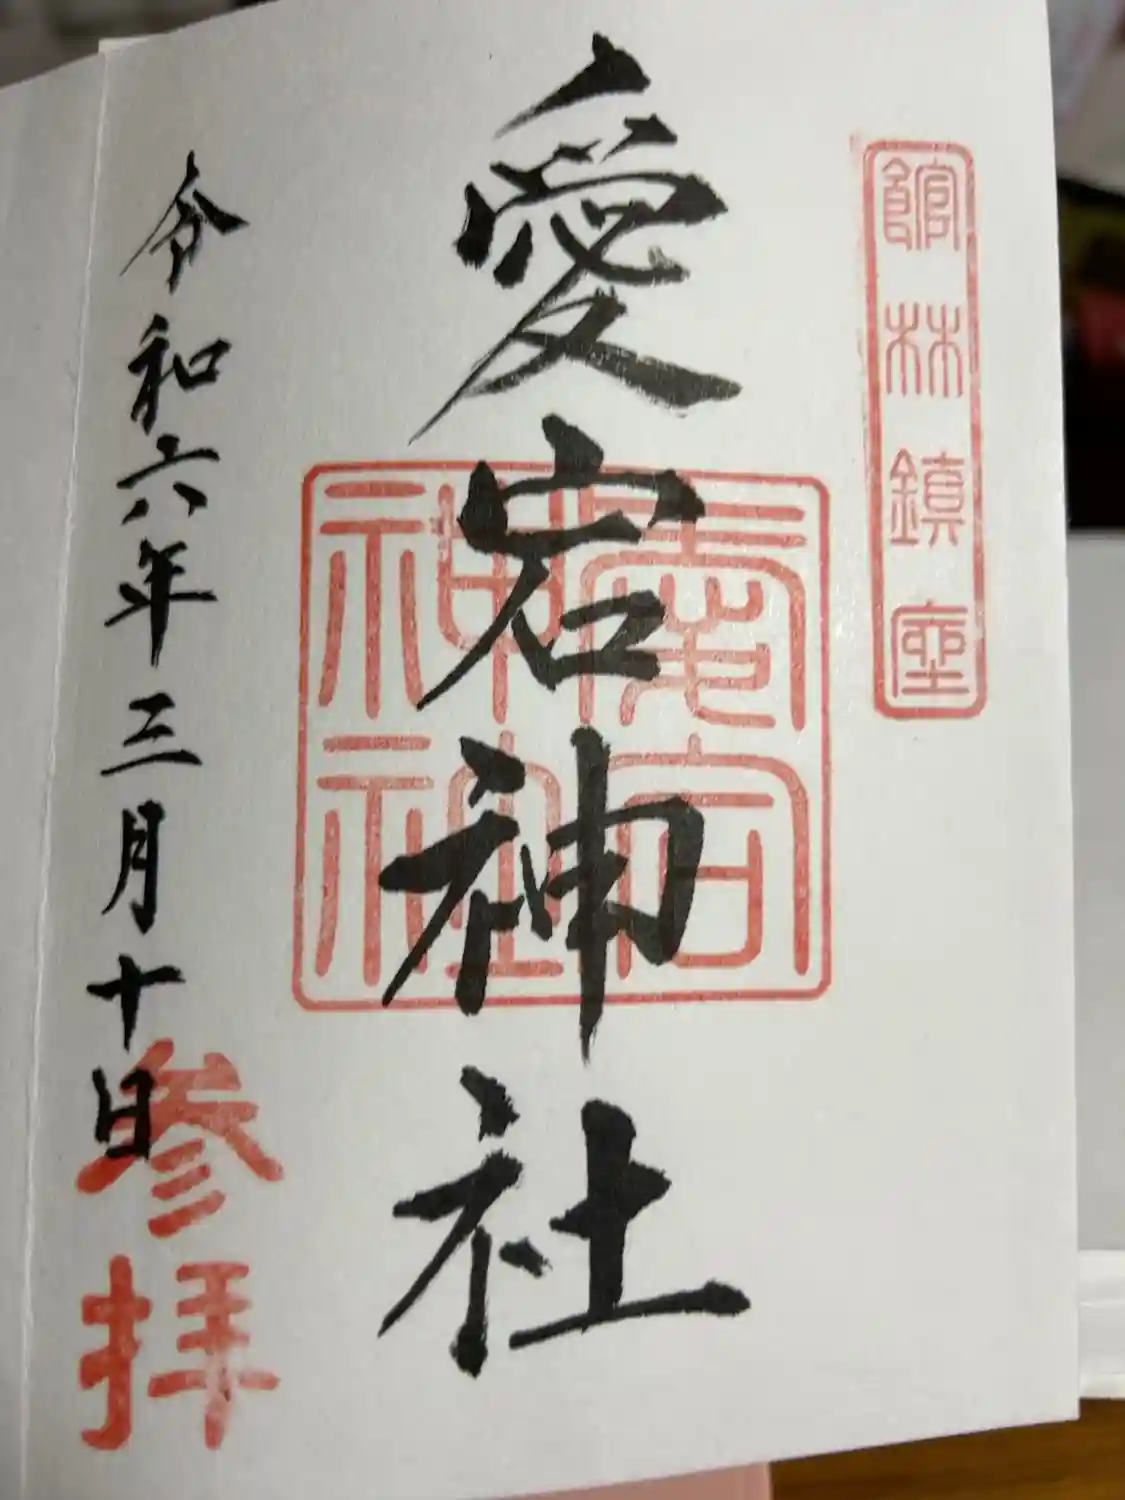 館林鎮座
愛宕神社
愛宕
神社
令和六年三月十日
参拝